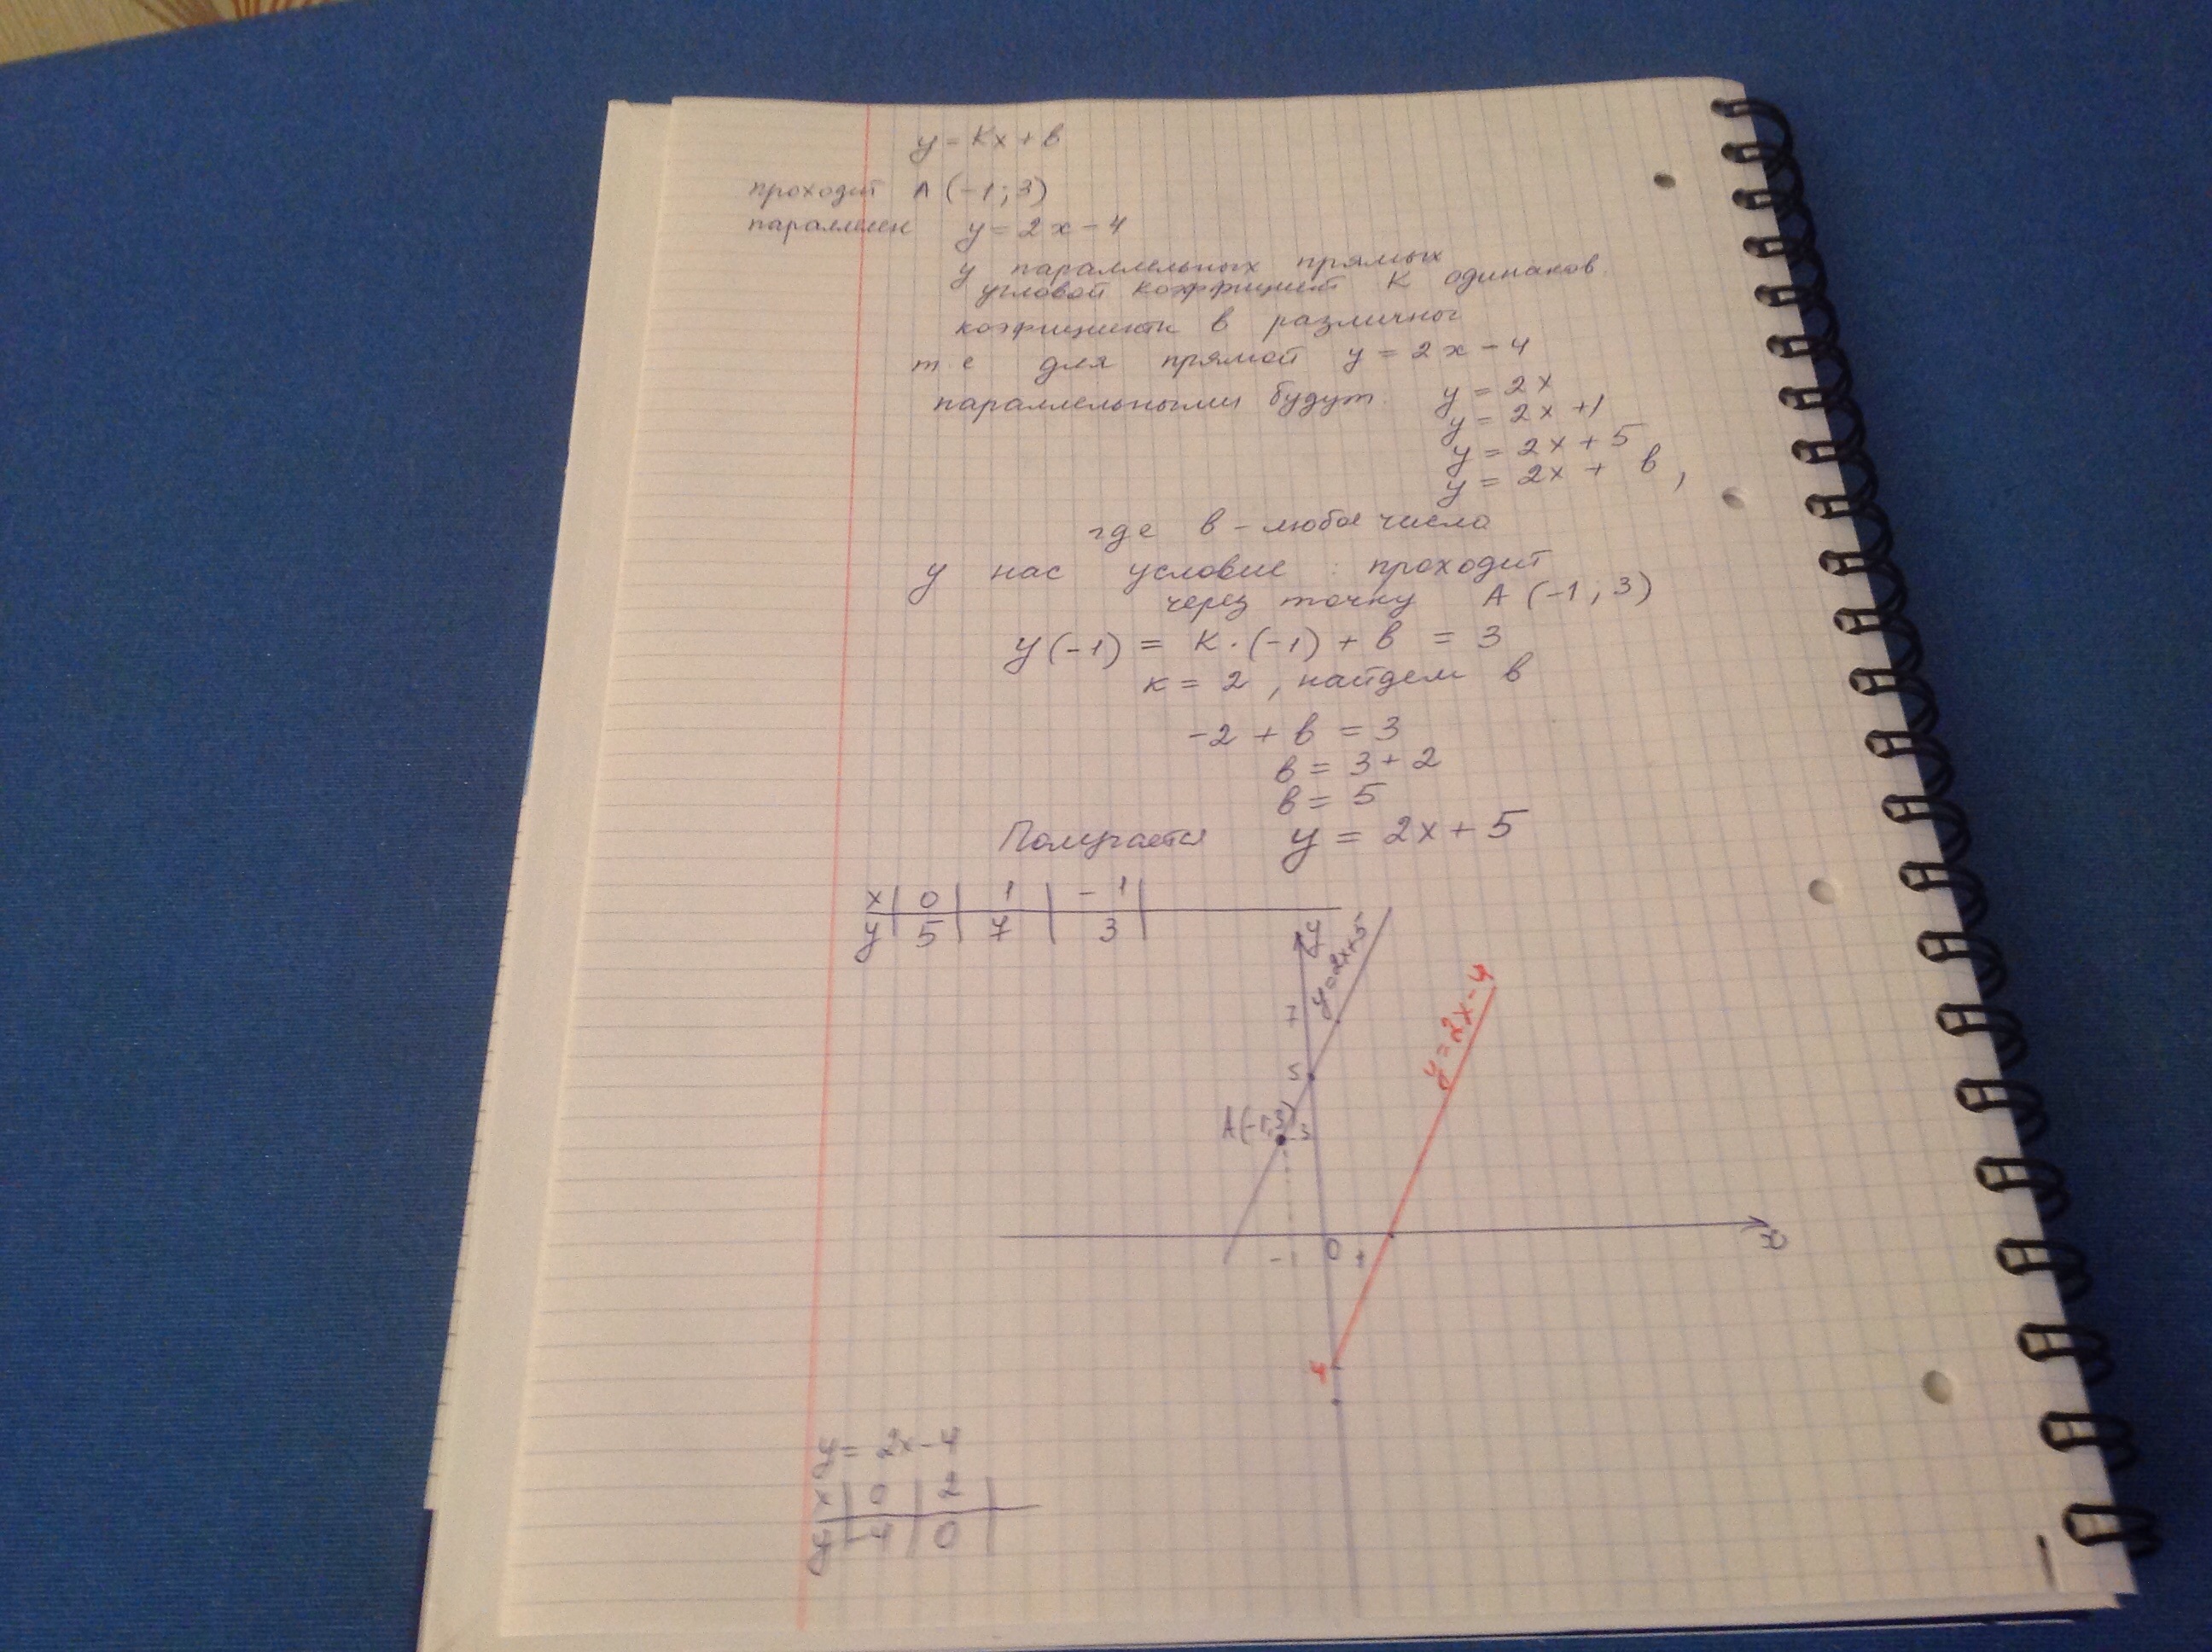 y = кx + в
проходит А (-1; 3)
параллелен y = 2x - 4
у параллельных прямых
угловой коэффициент К одинаков.
коэфициенты в различны
т е для прямой y = 2x - 4
параллельными будут y = 2x
y = 2x + 1
y = 2x + 5
y = 2x + в,
где в - любое число
у нас условие : проходит
через точку А (-1; 3)
y(-1) = к · (-1) + в = 3
к = 2, найдем в
-2 + в = 3
в = 3 + 2
в = 5
Получается y = 2x + 5
x | 0 | 1 | -1 |
y | 5 | 7 | 3 |
y
y = 2x+5
y = 2x-4
7
5
А(-1;3)
3
-1 0 1
x
y = 2x - 4
x | 0 | 2 |
y | -4 | 0 |